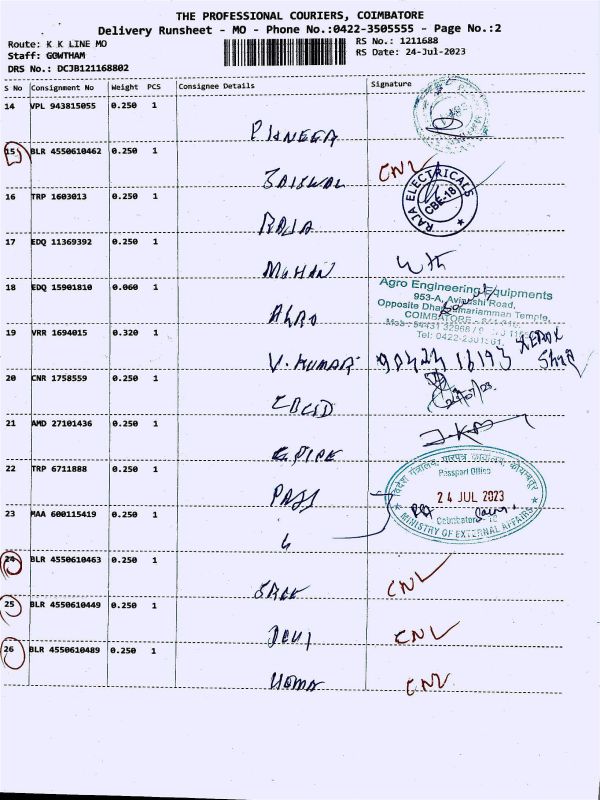 THE PROFESSIONAL COURIERS, COIMBATORE
Delivery Runsheet - MO - Phone No.:0422-3505555 - Page No.:2
Route: K K LINE MO
RS No.: 1211688
Staff: GOWTHAM
RS Date: 24-Jul-2023
DRS No.: DCJB121168802
S No Consignment No Weight PCS Consignee Details Signature
14 VPL 943815055 0.250 1
PIONEER
15 BLR 4550610462 0.250 1
JAISWAL CNL
16 TRP 1603013 0.250 1
RAJA ELECTRICALS
CBE-18
RAJA
17 EDQ 11369392 0.250 1
MOHAN
18 EDQ 15901810 0.060 1
Agro Engineering Equipments
953-A, Avinashi Road,
Opposite Mariamman Temple,
COIMBATORE
AGRO
19 VRR 1694015 0.320 1
V. KUMAR
XEROX
20 CNR 1758559 0.250 1
CBCID
24/07/23
21 AMD 27101436 0.250 1
22 TRP 6711888 0.250 1
PASS
Passport Office
24 JUL 2023
Coimbatore
MINISTRY OF EXTERNAL AFFAIRS
23 MAA 600115419 0.250 1
24 BLR 4550610463 0.250 1
CNL
25 BLR 4550610449 0.250 1
DEVI CNL
26 BLR 4550610489 0.250 1
CNL